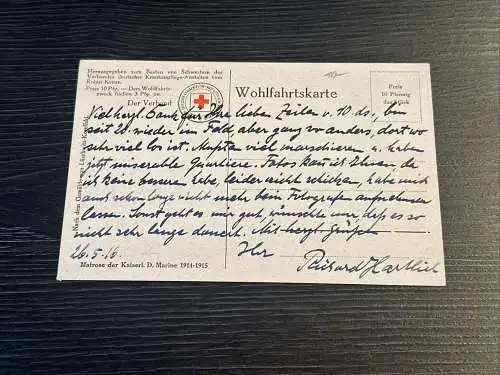 Herausgegeben zum Besten von Schwestern des
Verbandes deutscher Krankenpflege-Anstalten vom
Roten Kreuz.
Preis 10 Pfg. — Dem Wohlfahrts-
zweck fließen 3 Pfg. zu.
Der Verband.
Wohlfahrtskarte
Preis
10 Pfennig
das Stück
Viel herzl. Dank für Ihre lieben Zeilen v. 10 ds., bin
seit 20. wieder im Feld, aber ganz wo anders, dort wo
sehr viel los ist. Mußte viel marschieren u. habe
jetzt miserable Quartiere. Fotos kann ich Ihnen, da
ich keine bessere habe, leider nicht schicken, habe mich
auch schon lange nicht mehr beim Fotografen aufnehmen
lassen. Sonst geht es mir gut, wünschte nur, daß es so
nicht sehr lange dauert. Mit herzl. Grüßen
26.5.16. Ihr Richard
Matrose der Kaiserl. D. Marine 1914-1915.
Nach dem Gemälde von